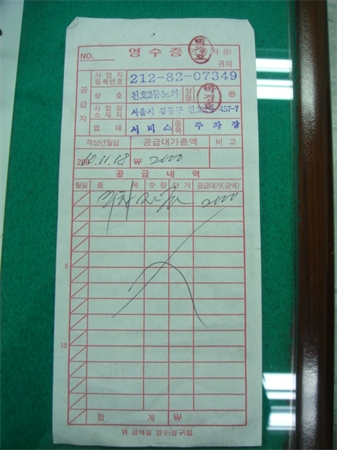 NO.
영 수 증
귀하
공급자
사업자등록번호 212-82-07349
상호 천호2동노외
사업장소재지 서울시 강동구 457-7
업태 서비스 주차장
작성년월일 공급대가총액 비고
₩ 2000
공 급 내 역
월일 품 목 수량 단가 공급대가(금액)
2000
5
10
합 계 ₩
위 금액을 영수(청구)함.